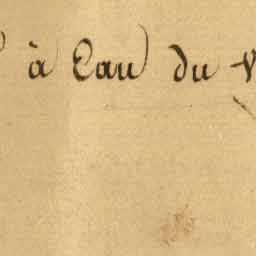 à Eau du